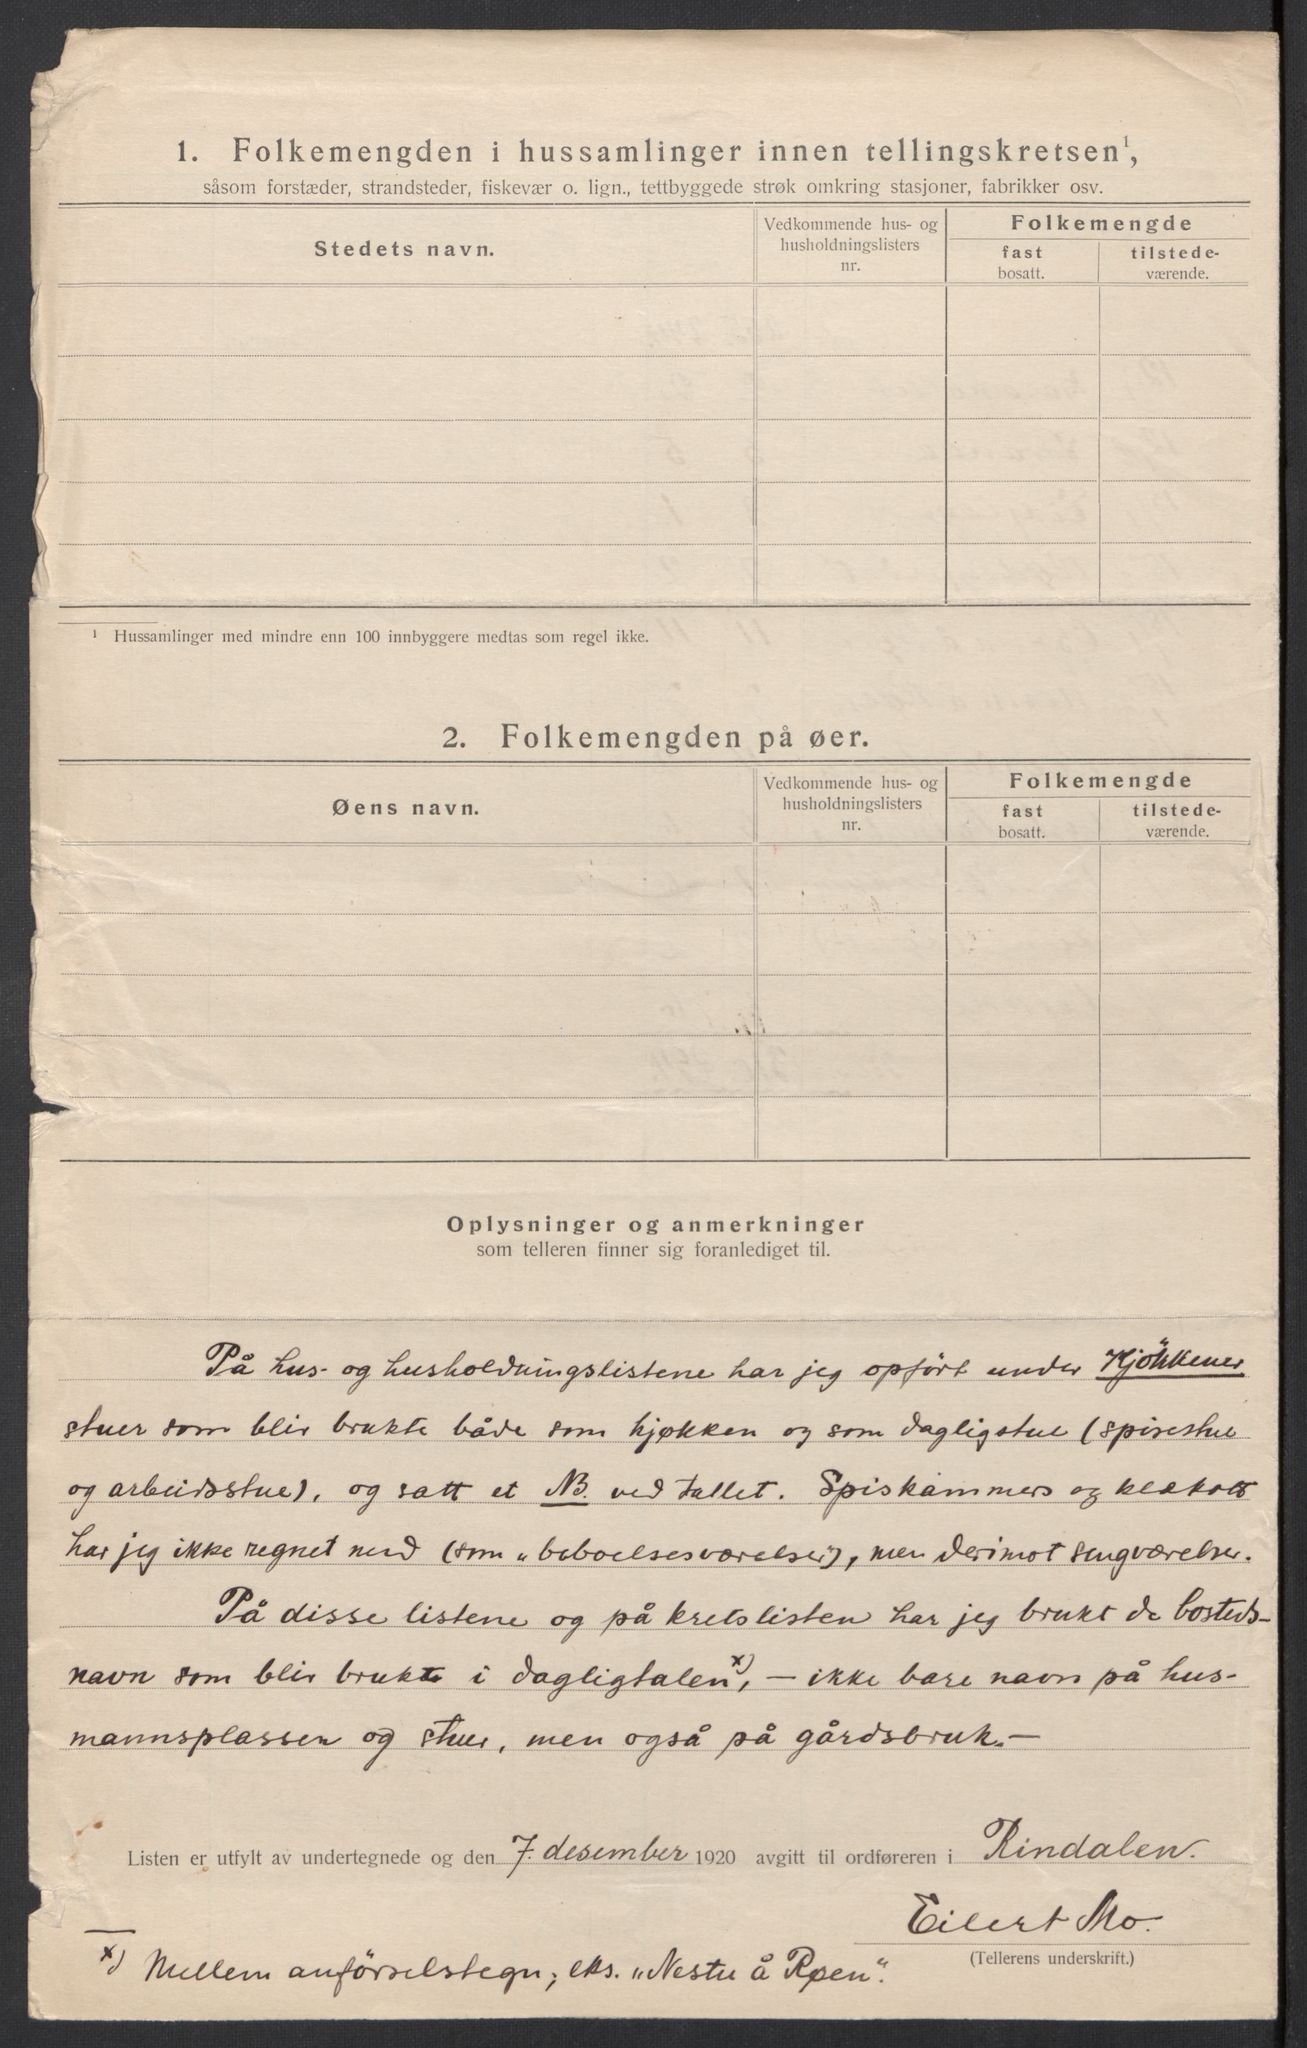 1. Folkemengden i hussamlinger innen tellingskretsen¹,
såsom forstæder, strandsteder, fiskevær o. lign., tettbyggede strøk omkring stasjoner, fabrikker osv.
Stedets navn.
Vedkommende hus- og
husholdningslisters
nr.
Folkemengde
fast
bosatt.
tilstede-
værende.
¹ Hussamlinger med mindre enn 100 innbyggere medtas som regel ikke.
2. Folkemengden på øer.
Øens navn.
Vedkommende hus- og
husholdningslisters
nr.
Folkemengde
fast
bosatt.
tilstede-
værende.
Oplysninger og anmerkninger
som telleren finner sig foranlediget til.
På hus- og husholdningslistene har jeg opført under Kjökkener
stuer som blir brukte både som kjøkken og som dagligstue (spisestue
og arbeidsstue), og satt et NB. ved tallet. Spiskammers og
har jeg ikke regnet med (som „beboelsesværelser"), men derimot sengværelser.
På disse listene og på kretslisten har jeg brukt de bosteds-
navn som blir brukte i dagligtalen x), — ikke bare navn på hus-
mannsplassen og stuer, men også på gårdsbruk.—
Listen er utfylt av undertegnede og den 7. desember 1920 avgitt til ordføreren i Rindalen.
Eilert Mo.
(Tellerens underskrift.)
x) Mellem anförselstegn; eks. „Nestu å